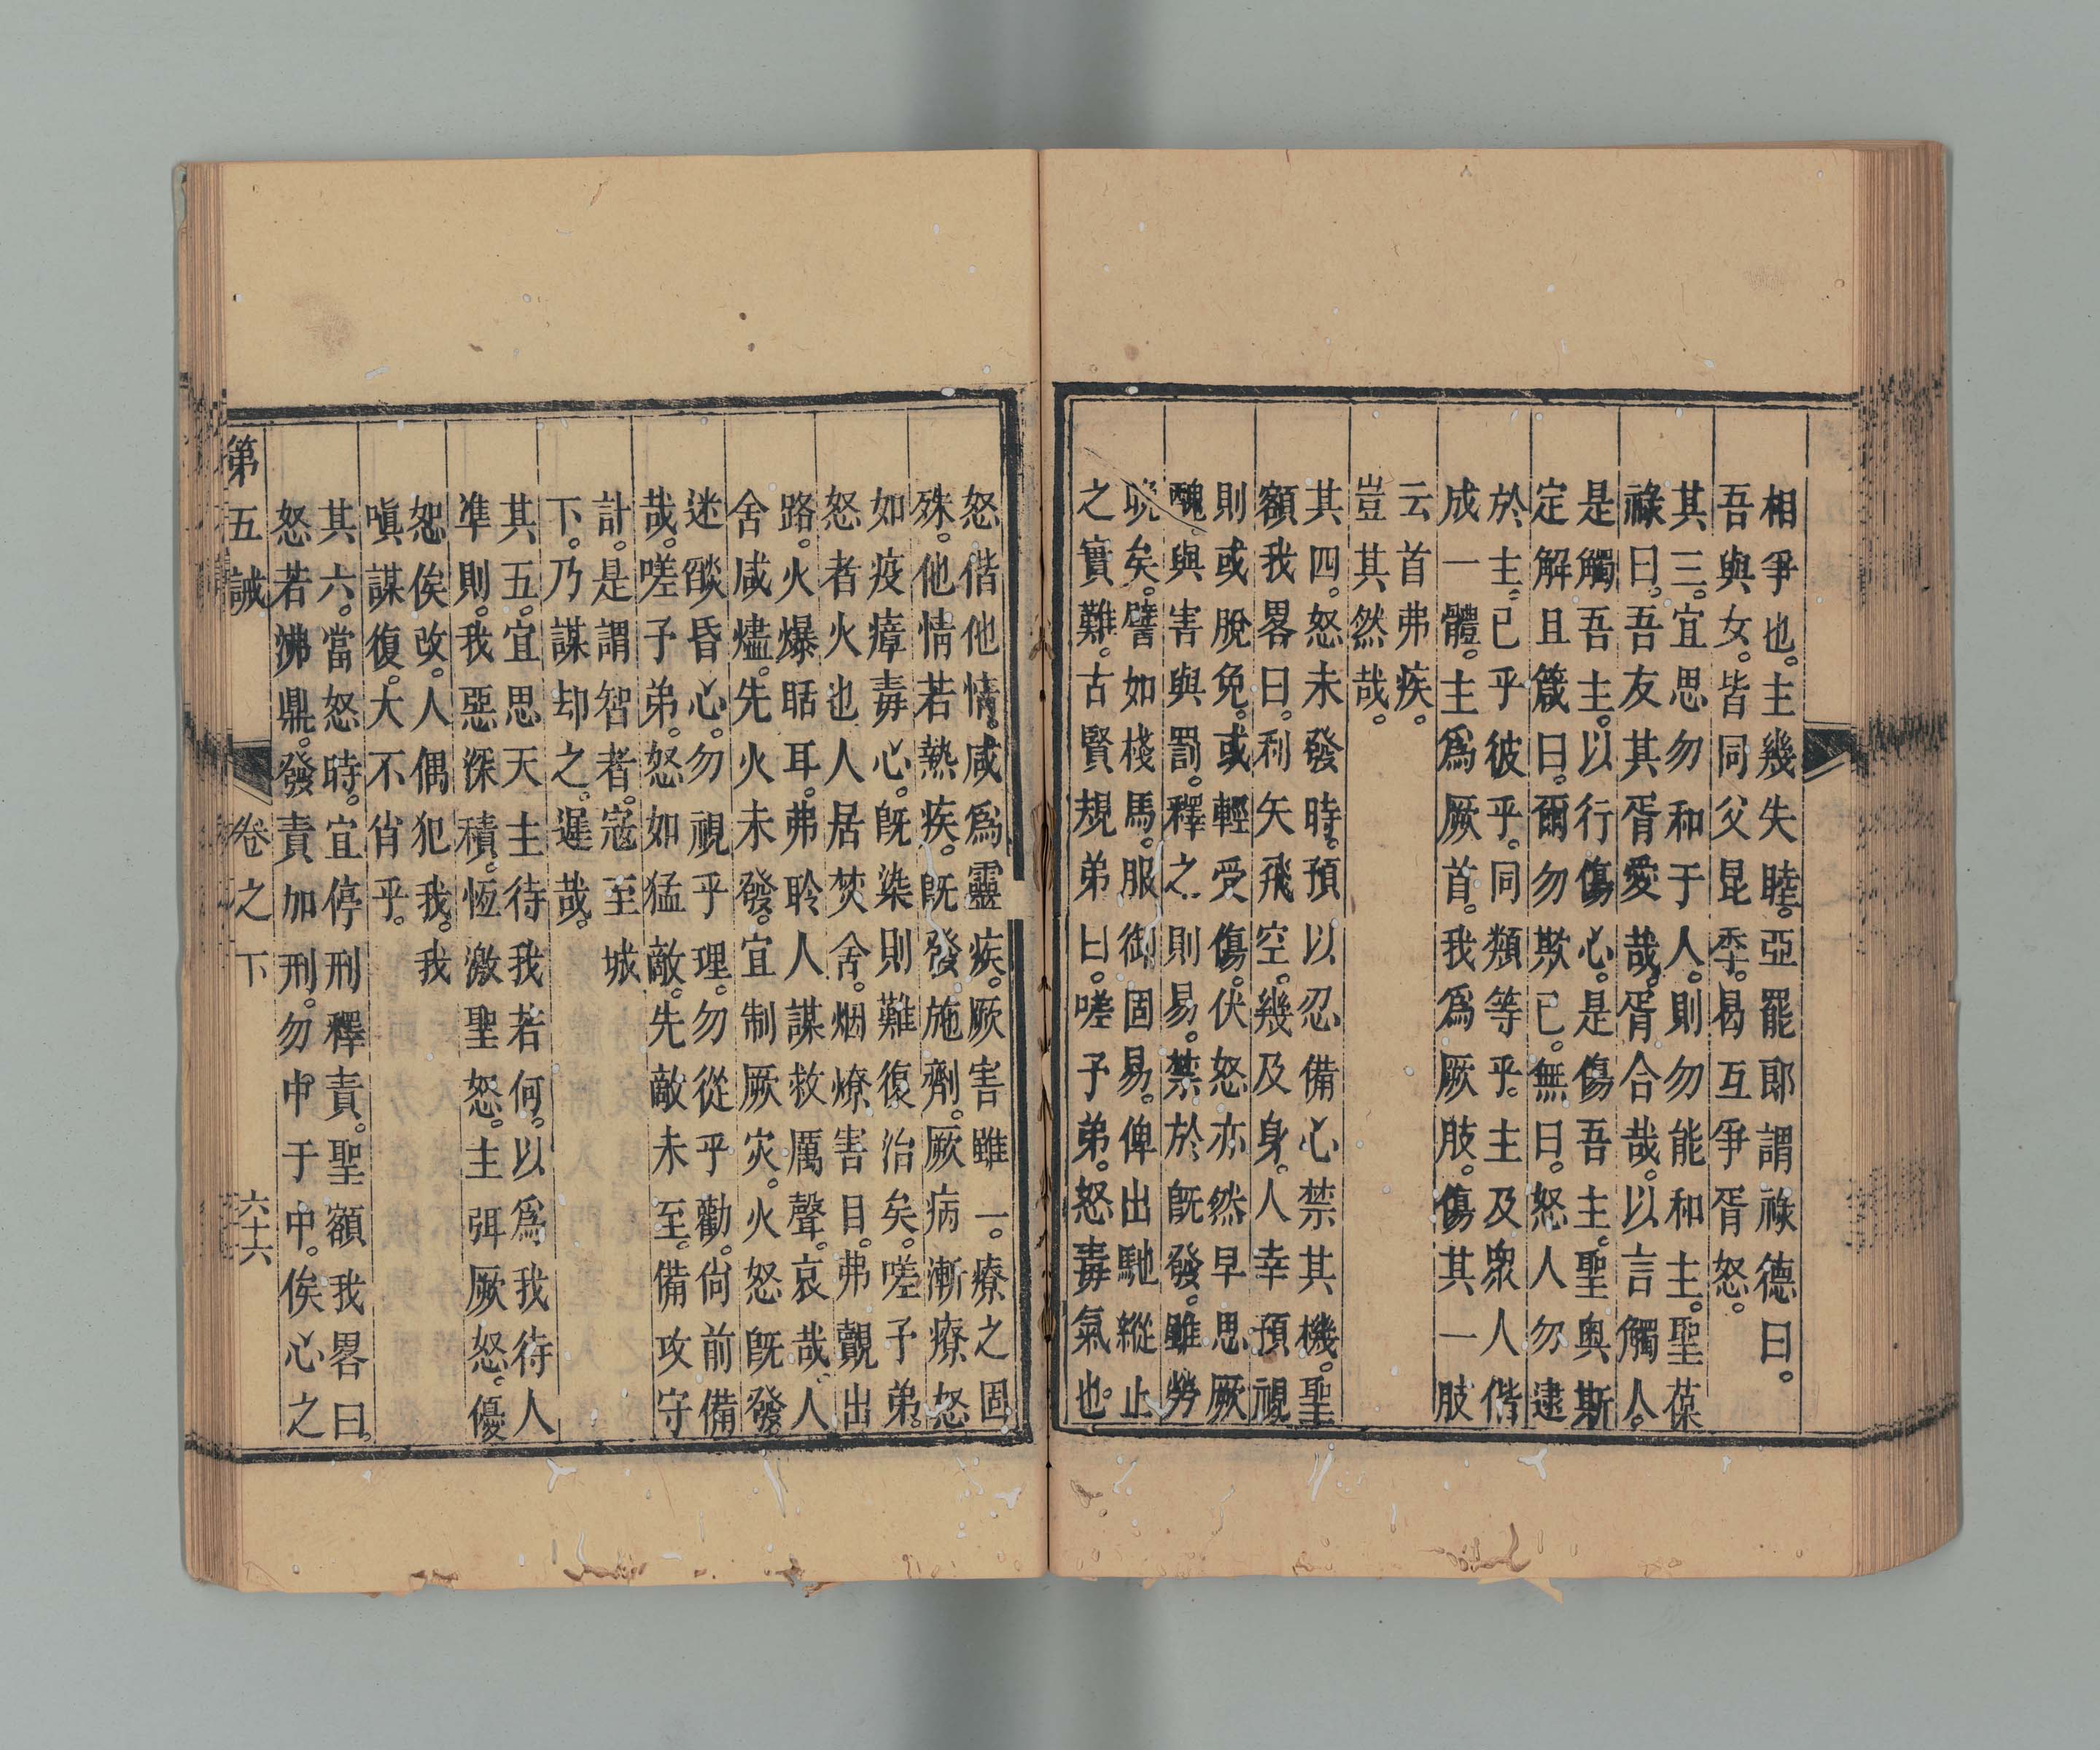 相爭也。主幾失睦。亞罷郎謂祿德曰。
吾與女。皆同父昆季。曷互爭胥怒。
其三。宜思勿和于人。則勿能和主。聖葆
祿曰。吾友其胥愛哉。胥合哉。以言觸人。
是觸吾主。以行傷心。是傷吾主。聖奥斯
定解且箴曰。爾勿欺已。無曰。怒人勿逮
於主。已乎彼乎。同類等乎。主及衆人偕
成一體。主爲厥首。我爲厥肢。傷其一肢
云首弗疾。
豈其然哉。
其四。怒未發時。預以忍備心禁其機。聖
額我畧曰。利矢飛空。幾及身。人幸預視
則或脫免。或輕受傷。伏怒亦然早思厥
醜。與害與罰。釋之則易。禁於旣發。雖勞
晚矣。譬如棧馬。服御固易。俾出馳縱止
之實難。古賢規弟曰。嗟予弟。怒毒氣也。
怒偕他情。咸爲靈疾。厥害雖一。療之固
殊。他情若熱疾。旣發施劑。厥病漸療怒
如疫瘴毒心。旣染則難復治矣。嗟予弟。
怒者火也人居焚舍。烟燎害目。弗覿出
路。火爆聒耳。弗聆人謀救厲聲。哀哉。人
舍咸燼。先火未發。宜制厥灾。火怒旣發
迷燄昏心。勿視乎理。勿從乎勸。尙前備
哉。嗟予弟。怒如猛敵。先敵未至。備攻守
計。是謂智者。寇至城
下。乃謀却之。遲哉。
其五。宜思天主待我若何。以爲我待人
準則。我惡深積。恆激聖怒。主弭厥怒。優
恕俟改。人偶犯我。我
嗔謀復。大不肖乎。
其六。當怒時。宜停刑釋責。聖額我畧曰。
怒若沸鼎。發責加刑。勿中于中。俟心之
第五誡 卷之下 六十六